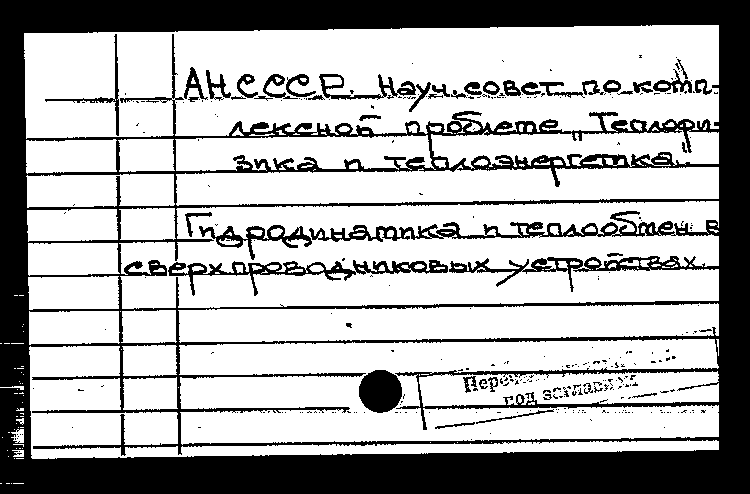 АН СССР. Науч. совет по комп-
лексной проблеме „Теплофи-
зика и теплоэнергетика."
Гидродинамика и теплообмен в
сверхпроводниковых устройствах.
под заглавии